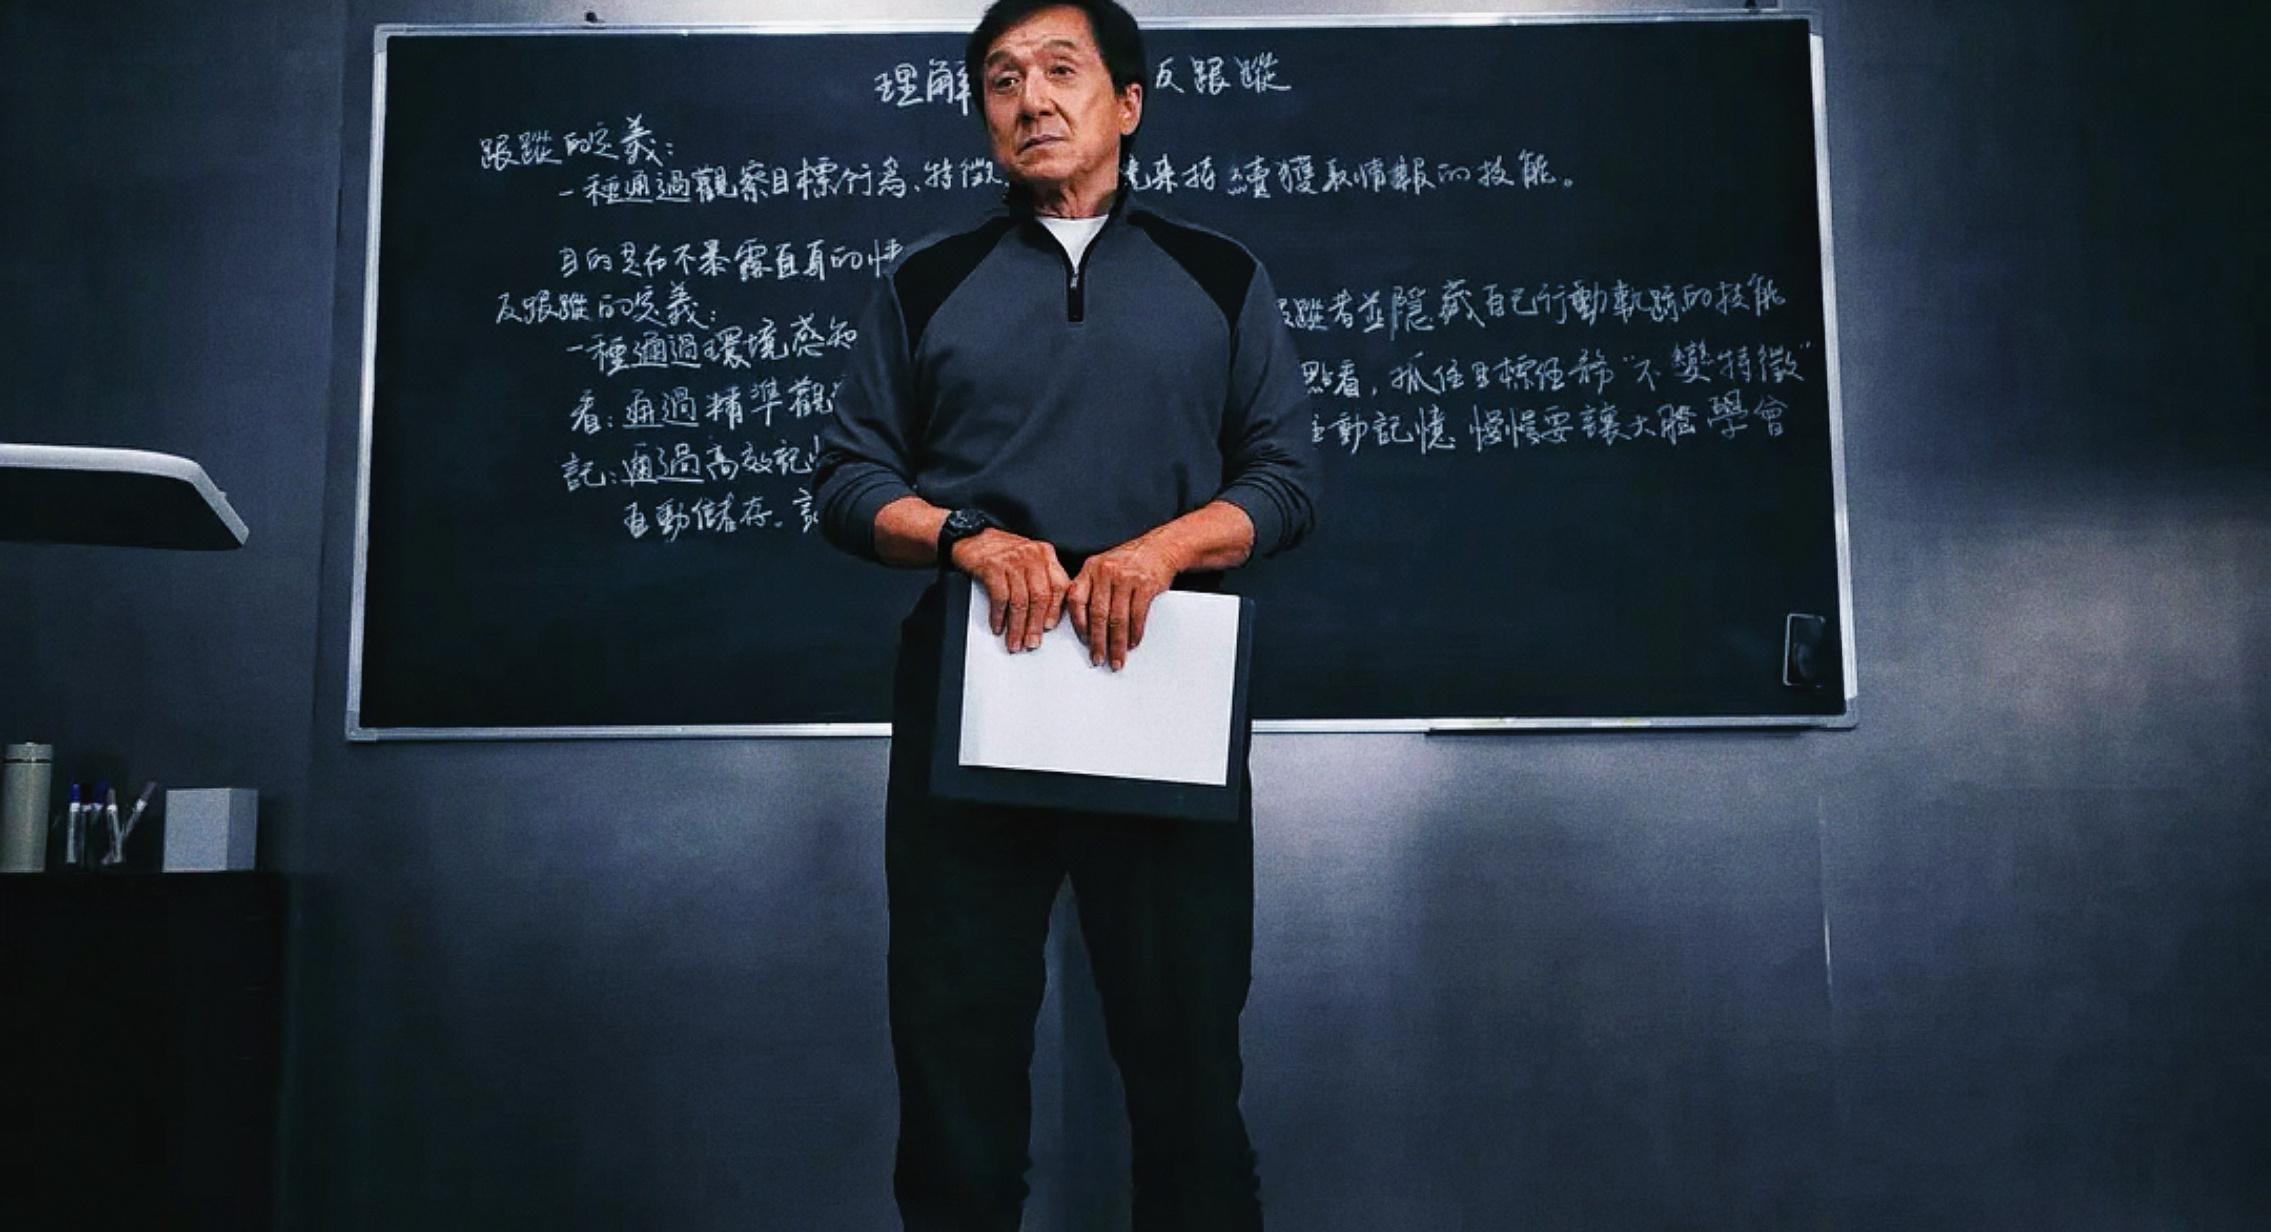 理解 反跟蹤
跟蹤的定義：
一種通過觀察目標行為、特徵 來持續獲取情報的技能。
目的是在不暴露自真的情
反跟蹤的定義：
一種通過環境感知 跟蹤者並隱藏自己行動軌跡的技能
看：通過精準觀 點看，抓住目標任務“不變特徵”
記：通過高效記 主動記憶 慢慢要讓大腦學會
自動儲存。